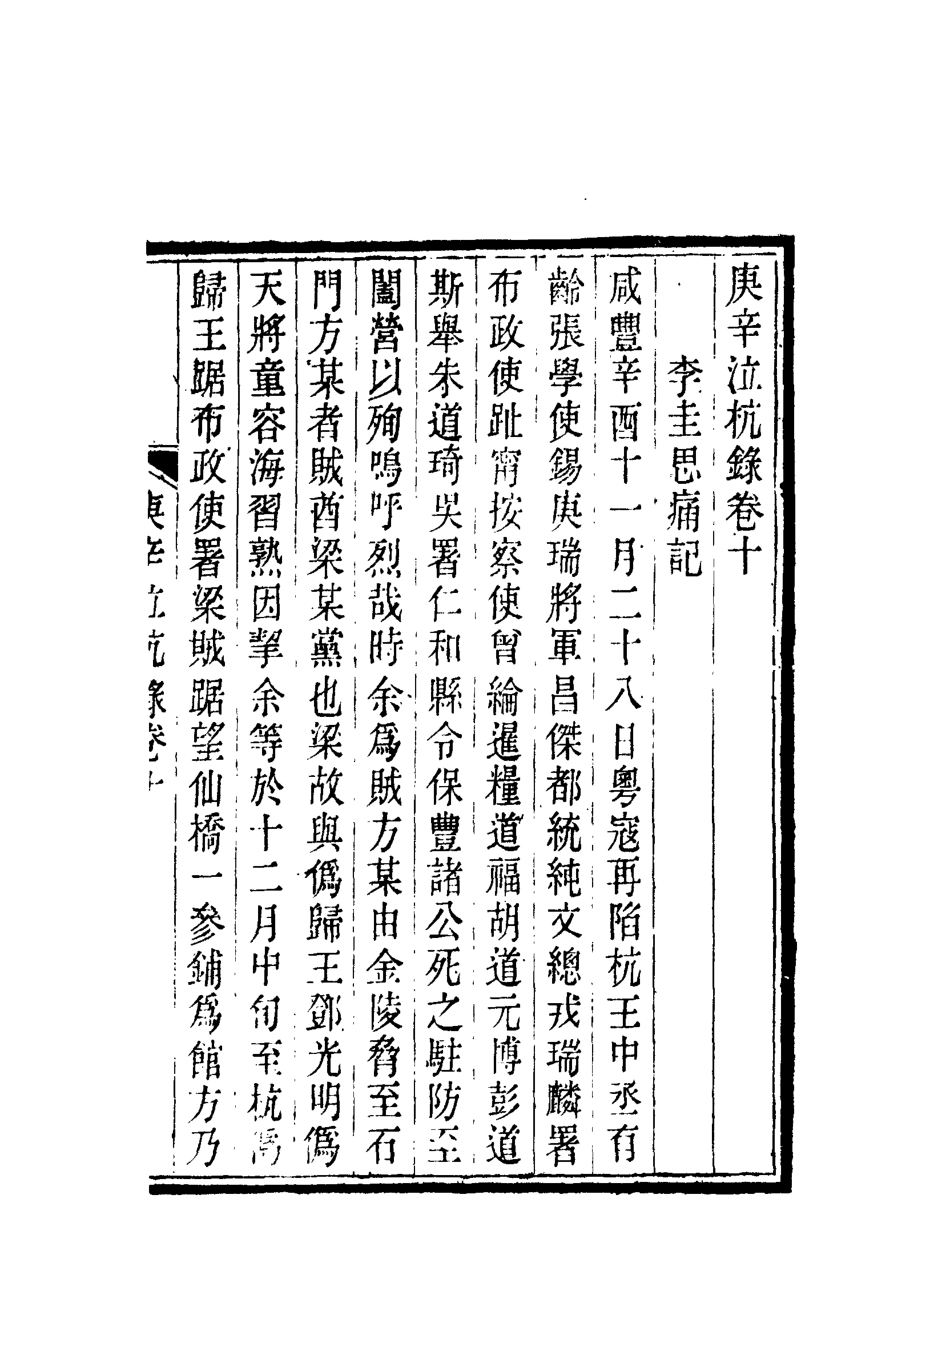 庚辛泣杭錄卷十
李圭思痛記
咸豐辛酉十一月二十八日粤寇再陷杭王中丞有
齡張學使錫庚瑞將軍昌傑都統純文總戎瑞麟署
布政使趾甯按察使曾綸暹糧道福胡道元博彭道
斯舉朱道琦吳署仁和縣令保豐諸公死之駐防至
闔營以殉嗚呼烈哉時余爲賊方某由金陵脅至石
門方某者賊酋梁某黨也梁故與僞歸王鄧光明僞
天將童容海習熟因挈余等於十二月中旬至杭僞
歸王踞布政使署梁賊踞望仙橋一參鋪爲館方乃
庚辛泣杭錄卷十